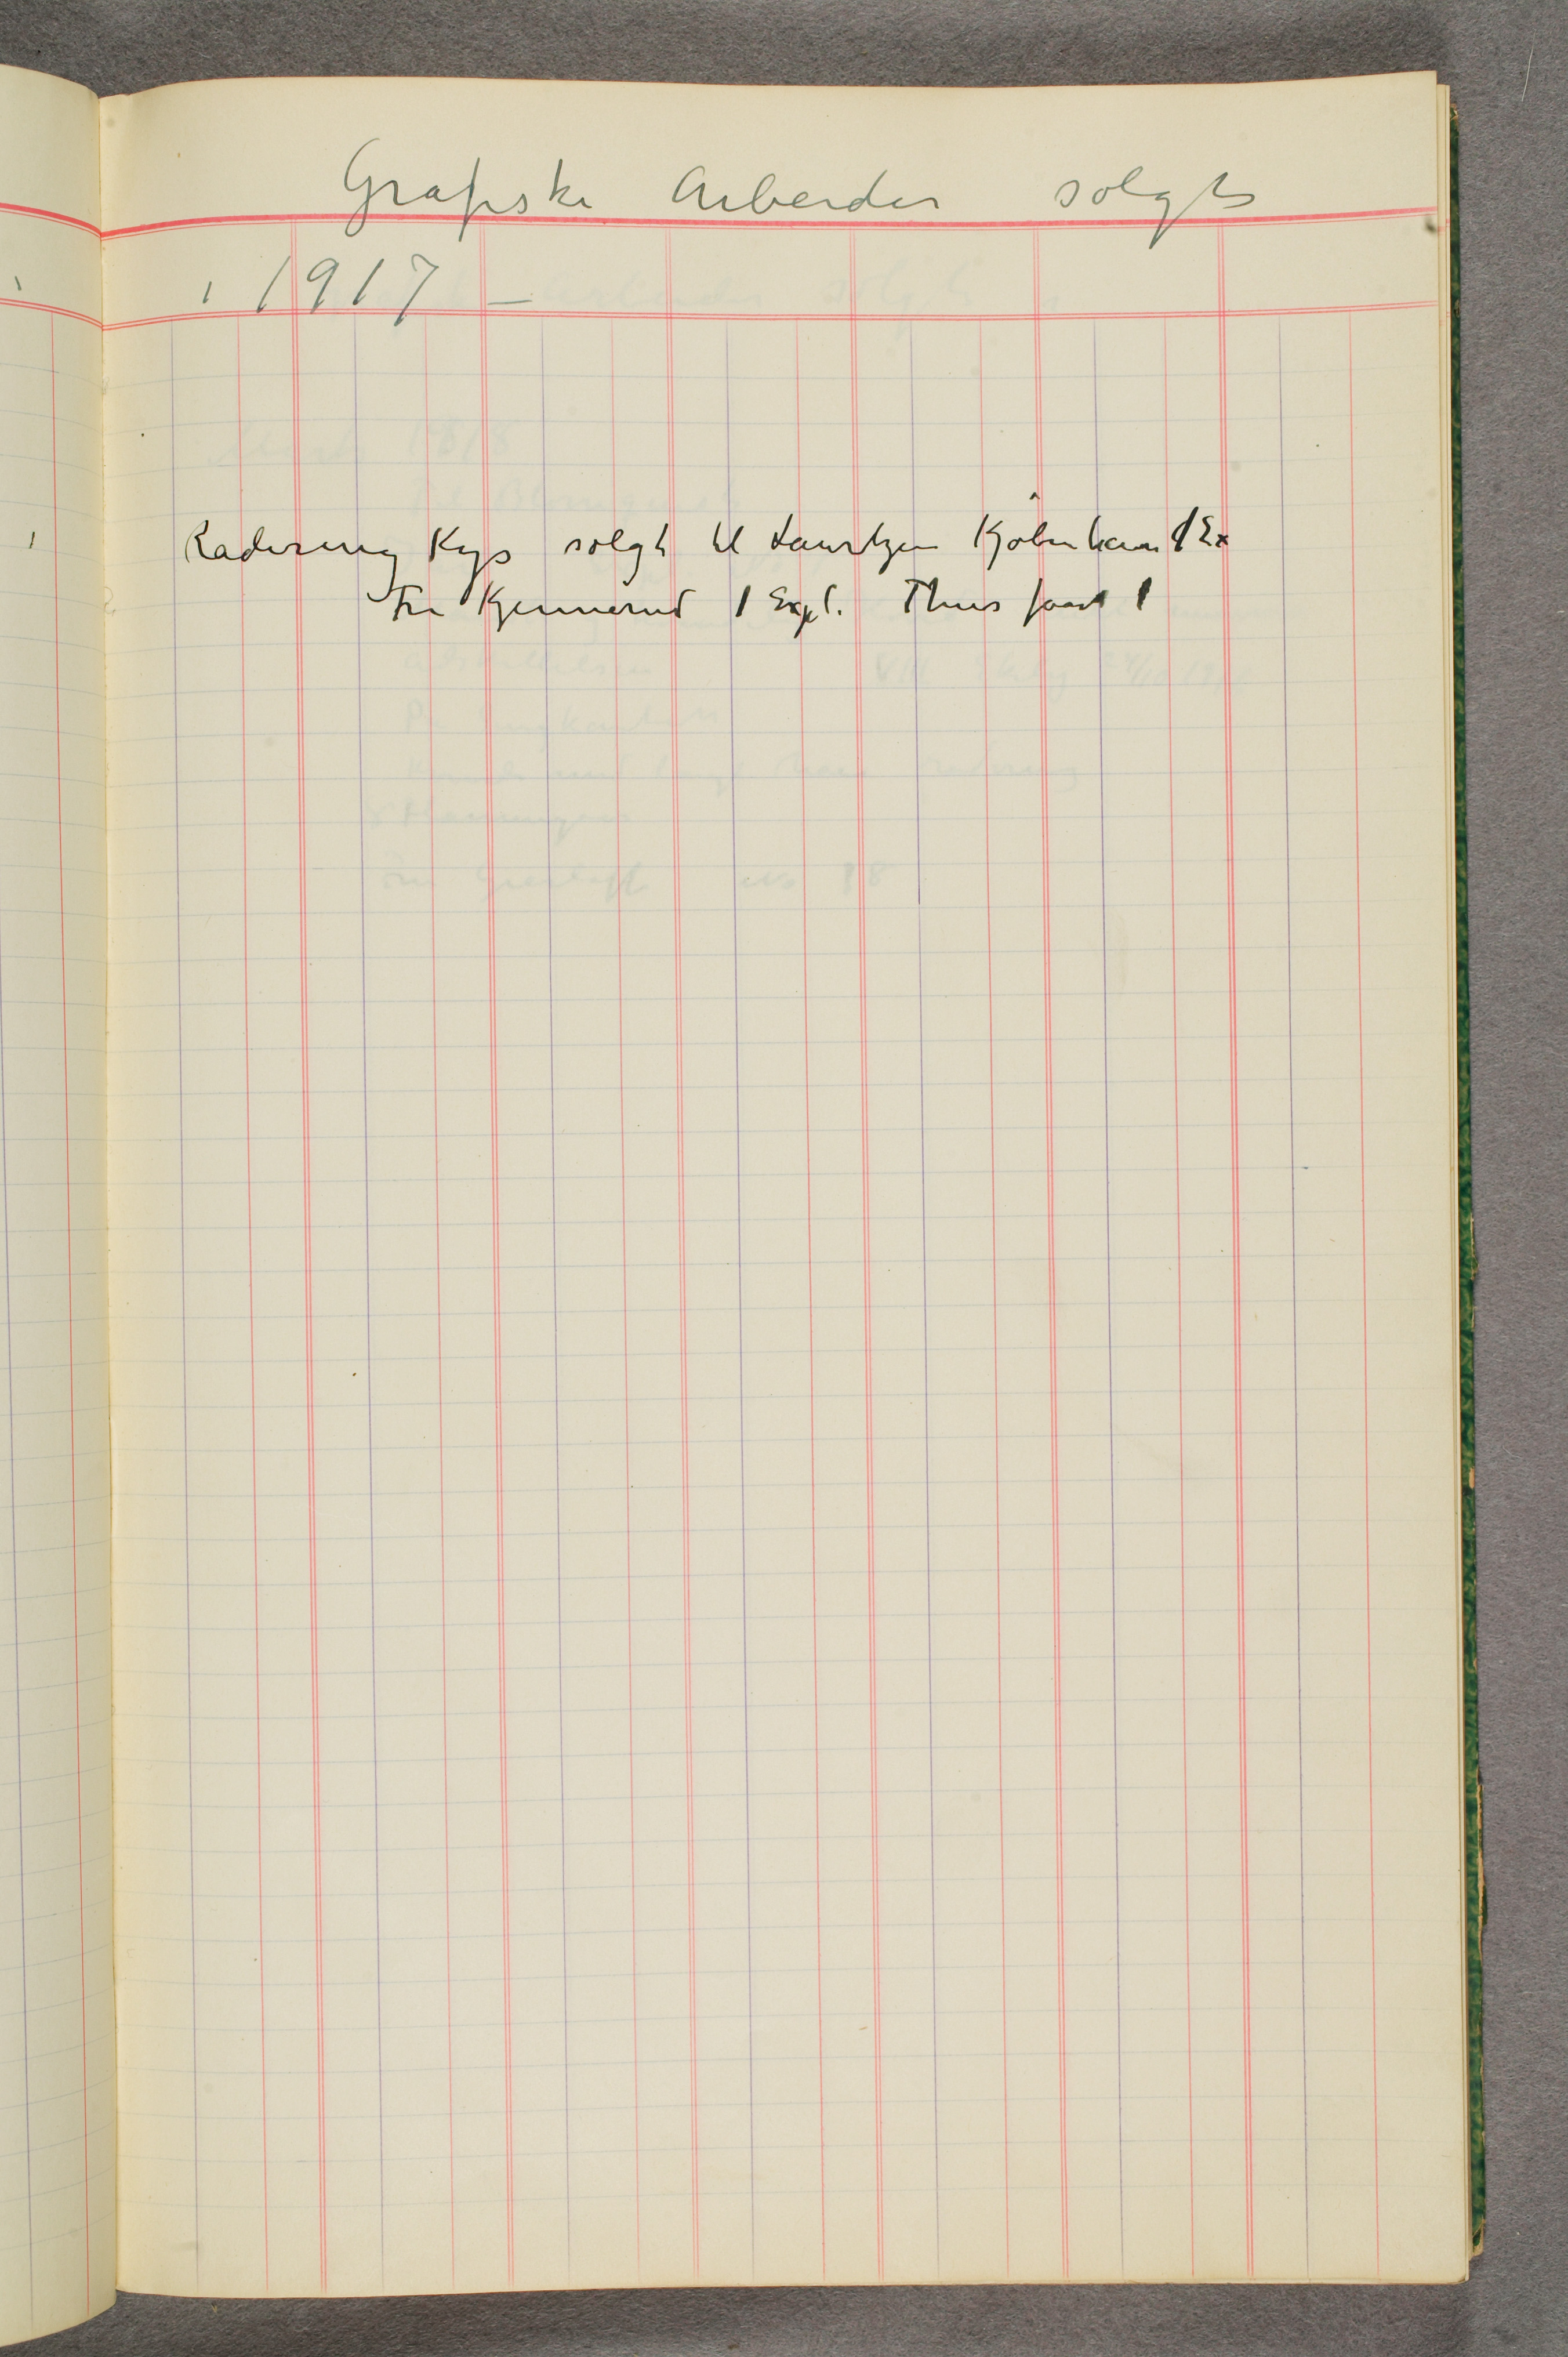 Grafiske Arbeider solgt
i 1917 –
Radering Kys solgt til Lauritzen Kjøbenhavn 1 Ex
Fru Kjennerud 1 Expl. Thiis faaet 1